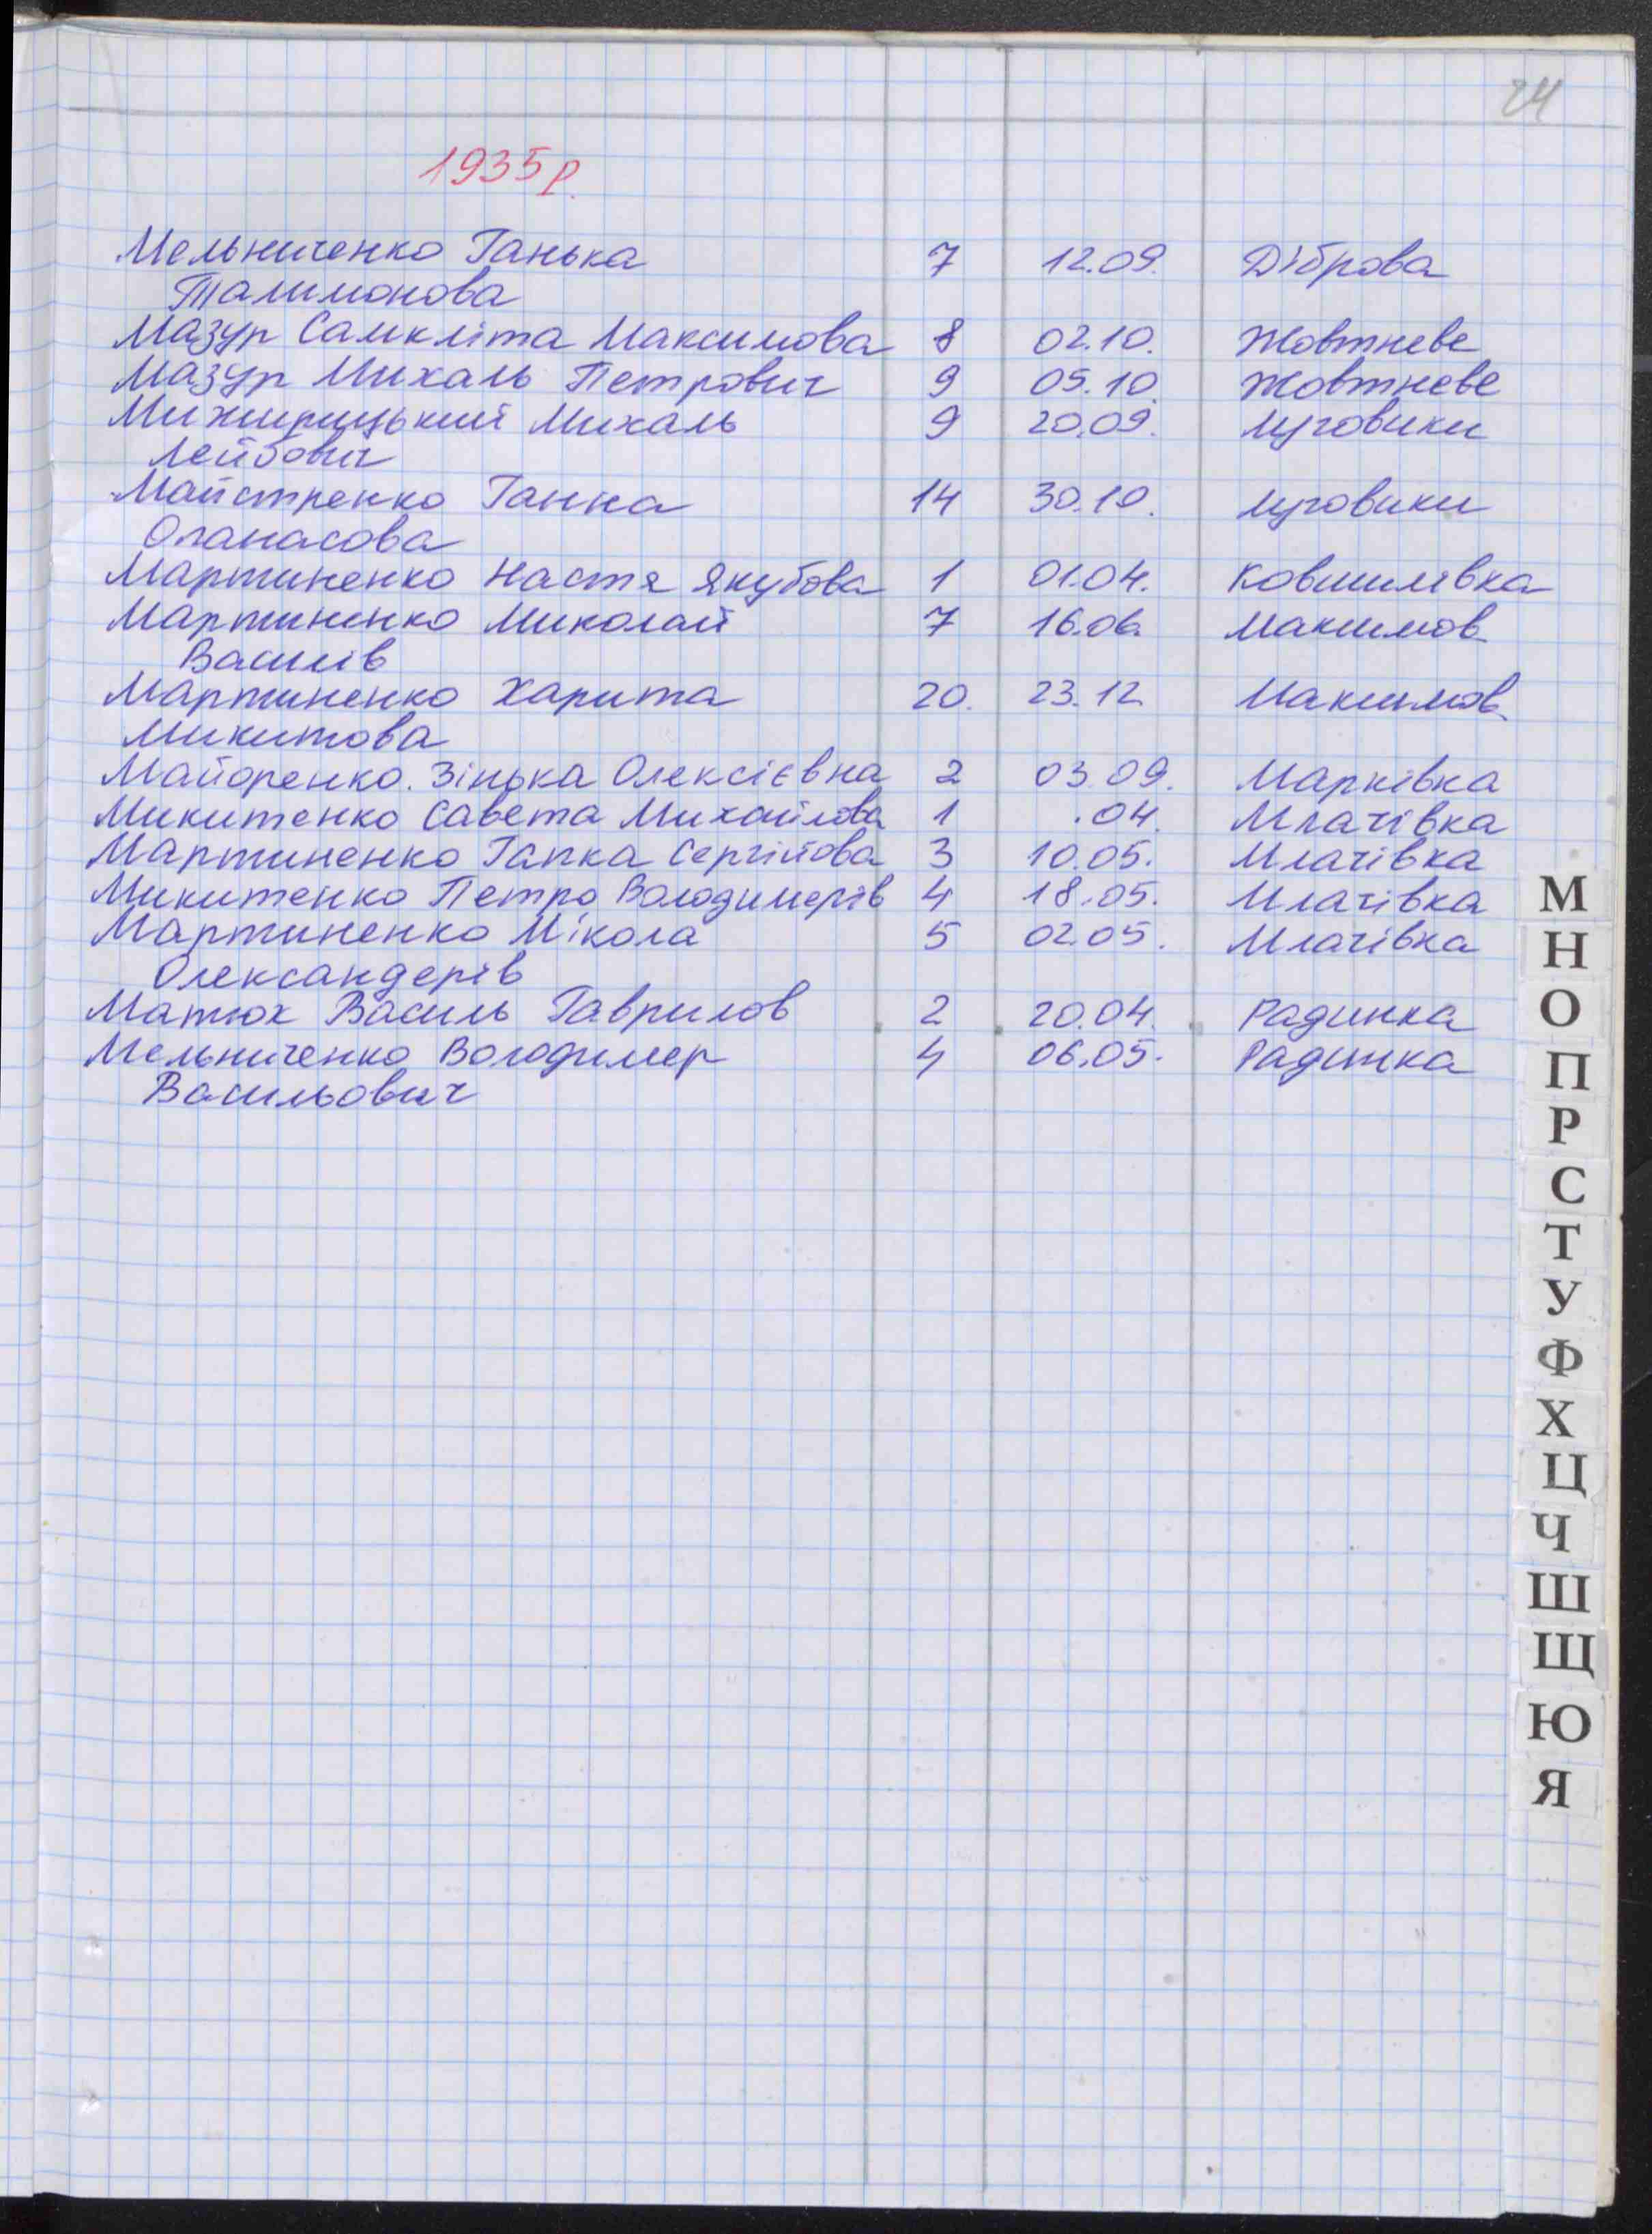 24
1935р.
Мельниченко Ганька 7 12.09. Діброва
Талимонова
Мазур Самкліта Максимова 8 02.10. Жовтневе
Мазур Михаль Петрович 9 05.10. Жовтневе
Мижирицький Михаль 9 20.09. Луговики
Лейбович
Майстренко Ганна 14 30.10. Луговики
Опанасова
Мартиненко Настя Якубова 1 01.04. Ковшилівка
Мартиненко Миколай 7 16.06. Максимов.
Василів
Мартиненко Харита 20. 23.12. Максимов.
Микитова
Майоренко. Зінька Олексієвна 2 03.09. Марківка
Микитенко Савета Михайлова 1 .04. Млачівка
Мартиненко Гапка Сергійова 3 10.05. Млачівка
Микитенко Петро Володимерів 4 18.05. Млачівка
Мартиненко Мікола 5 02.05. Млачівка
Олександерів
Матюх Василь Гаврилов 2 20.04. Радинка
Мельниченко Володимер 4 06.05. Радинка
Васильович
М
Н
О
П
Р
С
Т
У
Ф
Х
Ц
Ч
Ш
Щ
Ю
Я